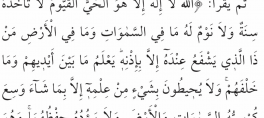 ثم يقرأ: ﴿اللَّهُ لَا إِلَهَ إِلَّا هُوَ الْحَيُّ الْقَيُّومُ لَا تَأْخُذُهُ
سِنَةٌ وَلَا نَوْمٌ لَهُ مَا فِي السَّمٰوَاتِ وَمَا فِي الْأَرْضِ مَنْ
ذَا الَّذِي يَشْفَعُ عِنْدَهُ إِلَّا بِإِذْنِهِ يَعْلَمُ مَا بَيْنَ أَيْدِيهِمْ وَمَا
خَلْفَهُمْ وَلَا يُحِيطُونَ بِشَيْءٍ مِنْ عِلْمِهِ إِلَّا بِمَا شَاءَ وَسِعَ